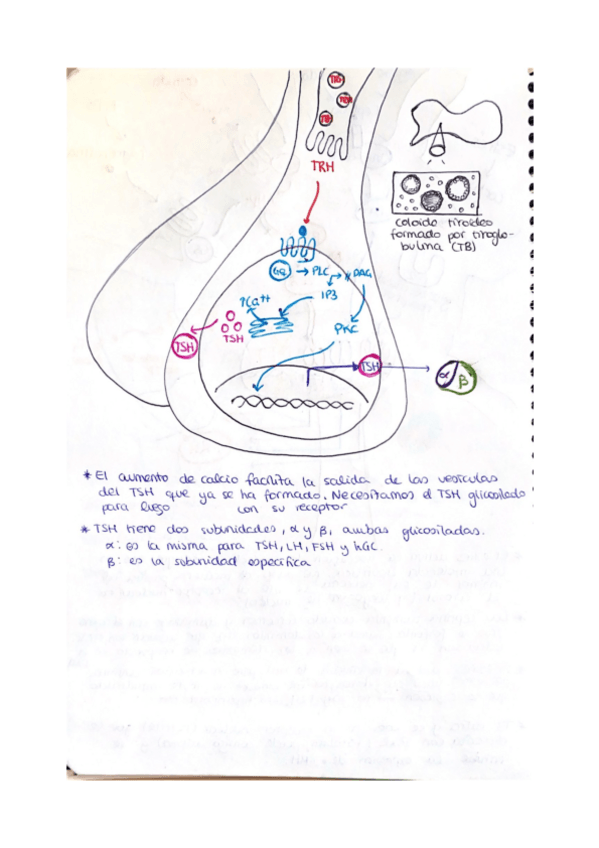 TRH
TRH
TRH
TRH
Gq → PLC → DAG
IP3
↑Ca++
PKC
TSH
TSH
TSH
α β
coloide tiroideo
formado por tiroglo-
bulina (TB)
* El aumento de calcio facilita la salida de las vesículas
del TSH que ya se ha formado. Necesitamos el TSH glicosilado
para luego con su receptor
* TSH tiene dos subunidades, α y β, ambas glicosiladas.
α: es la misma para TSH, LH, FSH y hGC.
β: es la subunidad específica